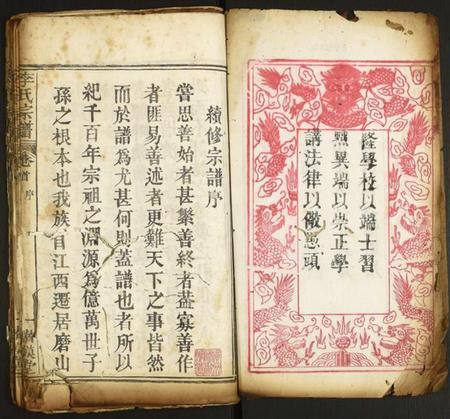 隆學校以端士習
黜異端以崇正學
講法律以儆愚頑
續修宗譜序
嘗思善始者甚繁善終者蓋寡善作
者匪易善述者更難天下之事皆然
而於譜為尤甚何則蓋譜也者所以
紀千百年宗祖之淵源為億萬世子
孫之根本也我族自江西遷居磨山
李氏宗譜
卷首
序